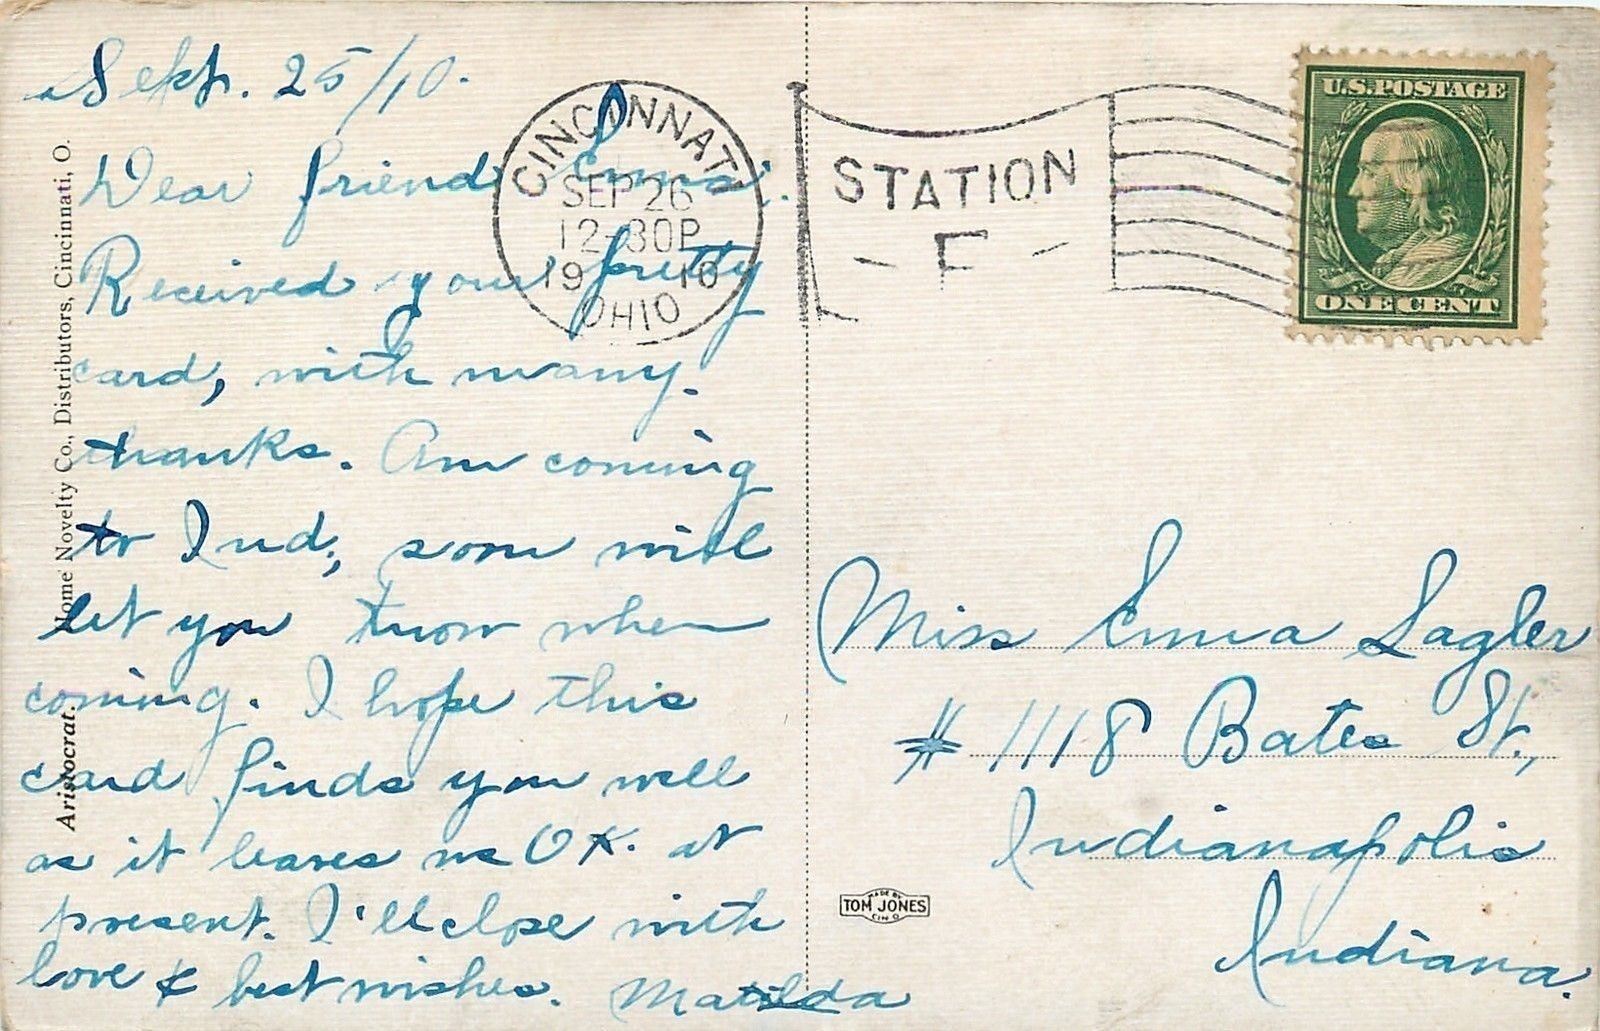 Sept. 25/10.
Dear friend Emma.
Received your pretty
card, with many.
thanks. Am coming
to Ind., soon will
let you know when
coming. I hope this
card finds you well
as it leaves us OK. at
present. I'll close with
love & best wishes. Matilda
Home Novelty Co., Distributors, Cincinnati, O.
Aristocrat.
CINCINNATI
SEP 26
12-30P
1910
OHIO
STATION
- F -
U.S. POSTAGE
ONE CENT
Miss Emma Sagler
# 1118 Bates St.,
Indianapolis
Indiana.
MADE BY
TOM JONES
CIN O